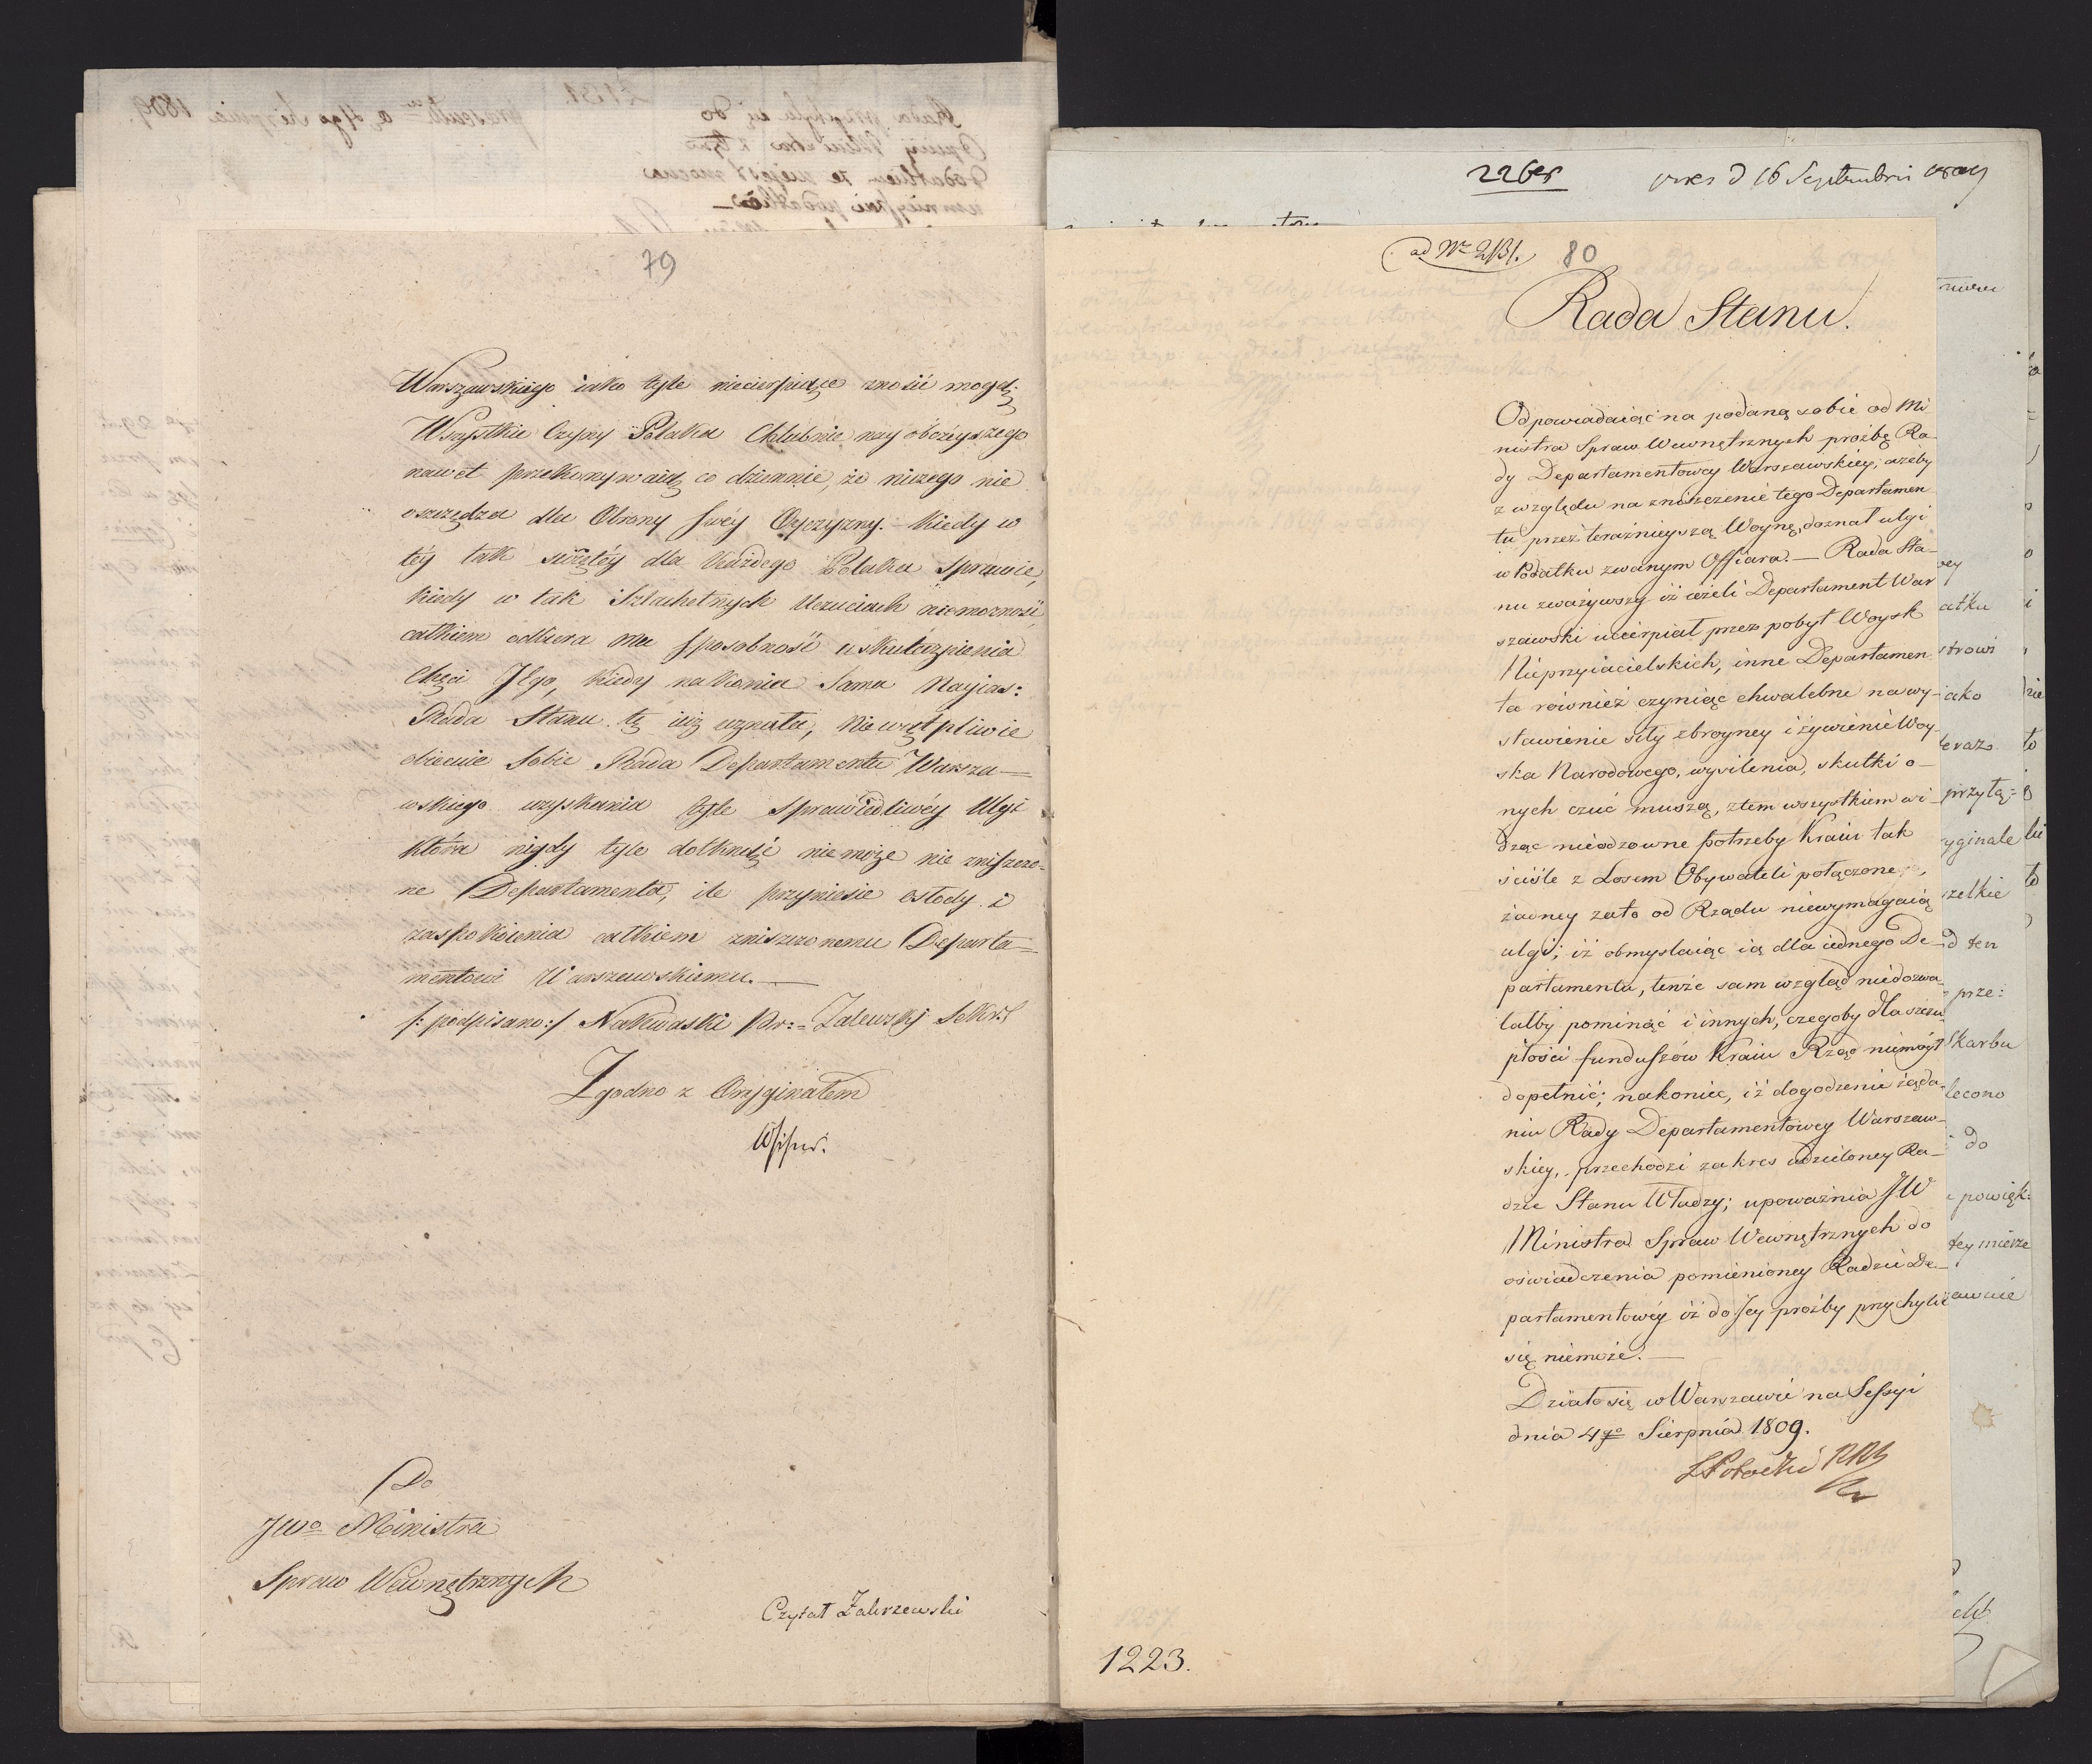 79
Warszawskiego iako tyle niecierpiące znosić mogą;
Wszystkie Czyny Polaka Chlubnie nayobcéyszego
nawet przekonywaią co dziennie, że niczego nie
oszczędza dla Obrony swéy Oyczyzny. – Kiedy w
téy tak swiętéy dla każdego Polaka sprawie,
kiedy w tak Szlachetnych Uczuciach niemożność
całkiem odbiera mu sposobność uskutecznienia
Chęci Jego, kiedy nakonia Sama Nayias:
Rada Stanu tę iuż uznała, Niewątpliwie
obiecuie sobie Rada Departamentu Warsza=
wskiego uzyskania tyle sprawiedliwéy Ulgi
która nigdy tyle dotknąć niemoże nie zniszczo=
ne Departamenta, ile przyniesie osłody i
zaspokoienia całkiem zniszczonemu Departa=
mentowi Warszawskiemu. —
/: podpisano:/ Nakwaski Pr:= Zalewski Sekr:
Zgodno z Oryginałem
Do
JWo Ministra
Spraw Wewnętrznych
Czytał Zakrzewski
226es
16 Septembris
ad Nr 2131. 80
Rada Stanu.
Odpowiadaiąc na podaną sobie od Mi
nistra Spraw Wewnętrznych prożbę Ra
dy Departamentowey Warszawskiey, ażeby
z względu na zniszczenie tego Departamen
tu przez teraznieyszą Woynę, doznał ulgi
w Podatku zwanym Offiara. — Rada Sta-
nu zważywszy iż ieżeli Departament War
szawski ucierpiał przez pobyt Woysk
Nieprzyiacielskich, inne Departamen
ta również czyniąc chwalebne na wy-
stawienie siły zbroyney i żywienie Woy-
ska Narodowego, wysilenia, skutki o-
nych czuć muszą, ztem wszystkiem wi-
dząc nieodzowne potrzeby Kraiu tak
ściśle z Losem Obywateli połączone,
żadney zato od Rządu niewymagaią
ulgi; iż obmyslaiąc ią dla iednego De-
partamentu, tenże sam wzgląd niedozwa-
lałby pominąć i innych, czegoby dla szczu-
płości funduszów Kraiu Rząd niemógł
dopełnić; nakoniec, iż dogodzenie żąda-
niu Rady Departamentowey Warszaw-
skiey, przechodzi zakres udzieloney Ra-
dzie Stanu Władzy; upoważnia JW
Ministra Spraw Wewnętrznych do
oświadczenia pomienioney Radzie De-
partamentowéy iż do Jey prożby przychylić
się niemoże. —
Działo się w Warszawie na Sessyi
dnia 4go Sierpnia 1809.
Potocki
1223.